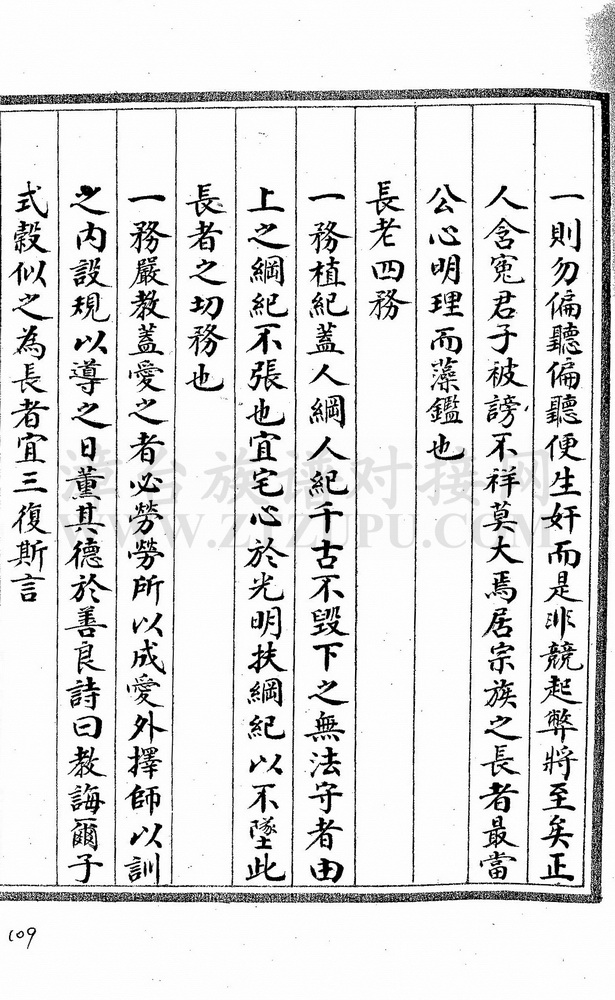 一則勿偏聽偏聽便生奸而是非競起弊將至矣正
人含冤君子被謗不祥莫大焉居宗族之長者最當
公心明理而藻鑑也
長老四務
一務植紀蓋人綱人紀千古不毀下之無法守者由
上之綱紀不張也宜宅心於光明扶綱紀以不墜此
長者之切務也
一務嚴教蓋愛之者必勞勞所以成愛外擇師以訓
之內設規以導之日薰其德於善良詩曰教誨爾子
式穀似之為長者宜三復斯言
漳台族谱对接网
WWW.ZTZUPU.COM
109